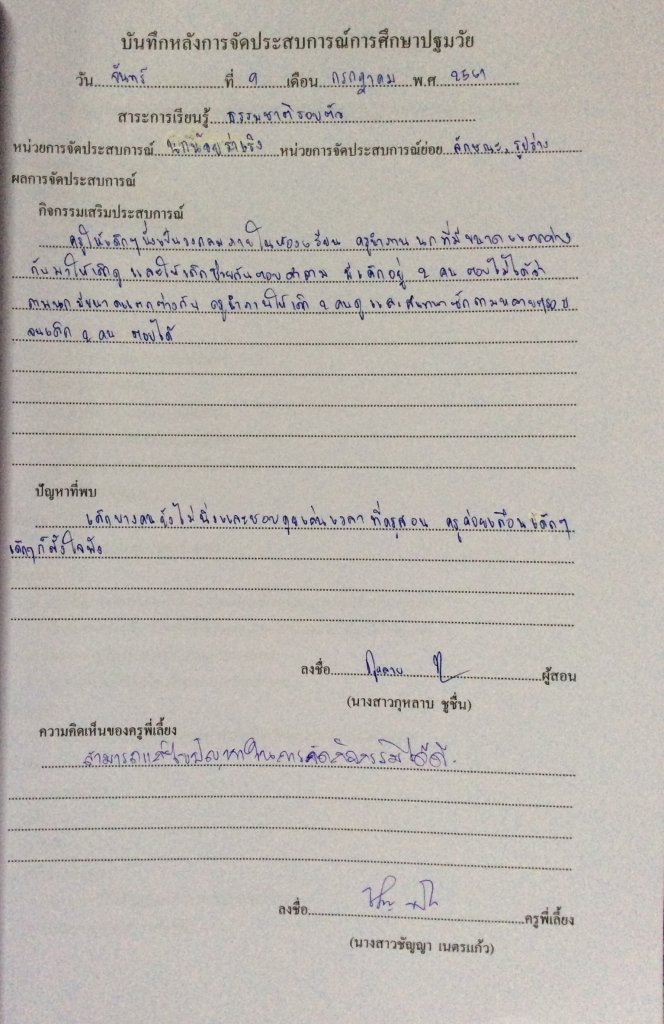 บันทึกหลังการจัดประสบการณ์การศึกษาปฐมวัย
วัน จันทร์ ที่ 9 เดือน กรกฎาคม พ.ศ 2561
สาระการเรียนรู้ ธรรมชาติรอบตัว
หน่วยการจัดประสบการณ์ นกน้อยร่าเริง หน่วยการจัดประสบการณ์ย่อย ลักษณะ, รูปร่าง
ผลการจัดประสบการณ์
กิจกรรมเสริมประสบการณ์
ครูให้เด็กๆ นั่งเป็นวงกลมภายในห้องเรียน ครูนำภาพ นก ที่มีขนาดแตกต่าง
กันมาให้เด็กดู และให้เด็กช่วยกันตอบคำถาม มีเด็กอยู่ 2 คน ตอบไม่ได้ว่า
ภาพนก มีขนาดแตกต่างกัน ครูนำภาพให้เด็ก 2 คนดู และสนทนาซักถามหลายๆรอบ
จนเด็ก 2 คน ตอบได้
ปัญหาที่พบ
เด็กบางคนยังไม่นิ่งและชอบคุยเล่นเวลาที่ครูสอน ครูค่อยเตือนเด็กๆ
เด็กๆ ก็ตั้งใจฟัง
ลงชื่อ กุหลาบ ผู้สอน
(นางสาวกุหลาบ ชูชื่น)
ความคิดเห็นของครูพี่เลี้ยง
สามารถแก้ไขปัญหาในการจัดกิจกรรมได้ดี.
ลงชื่อ ครูพี่เลี้ยง
(นางสาวชัญญา เนตรแก้ว)